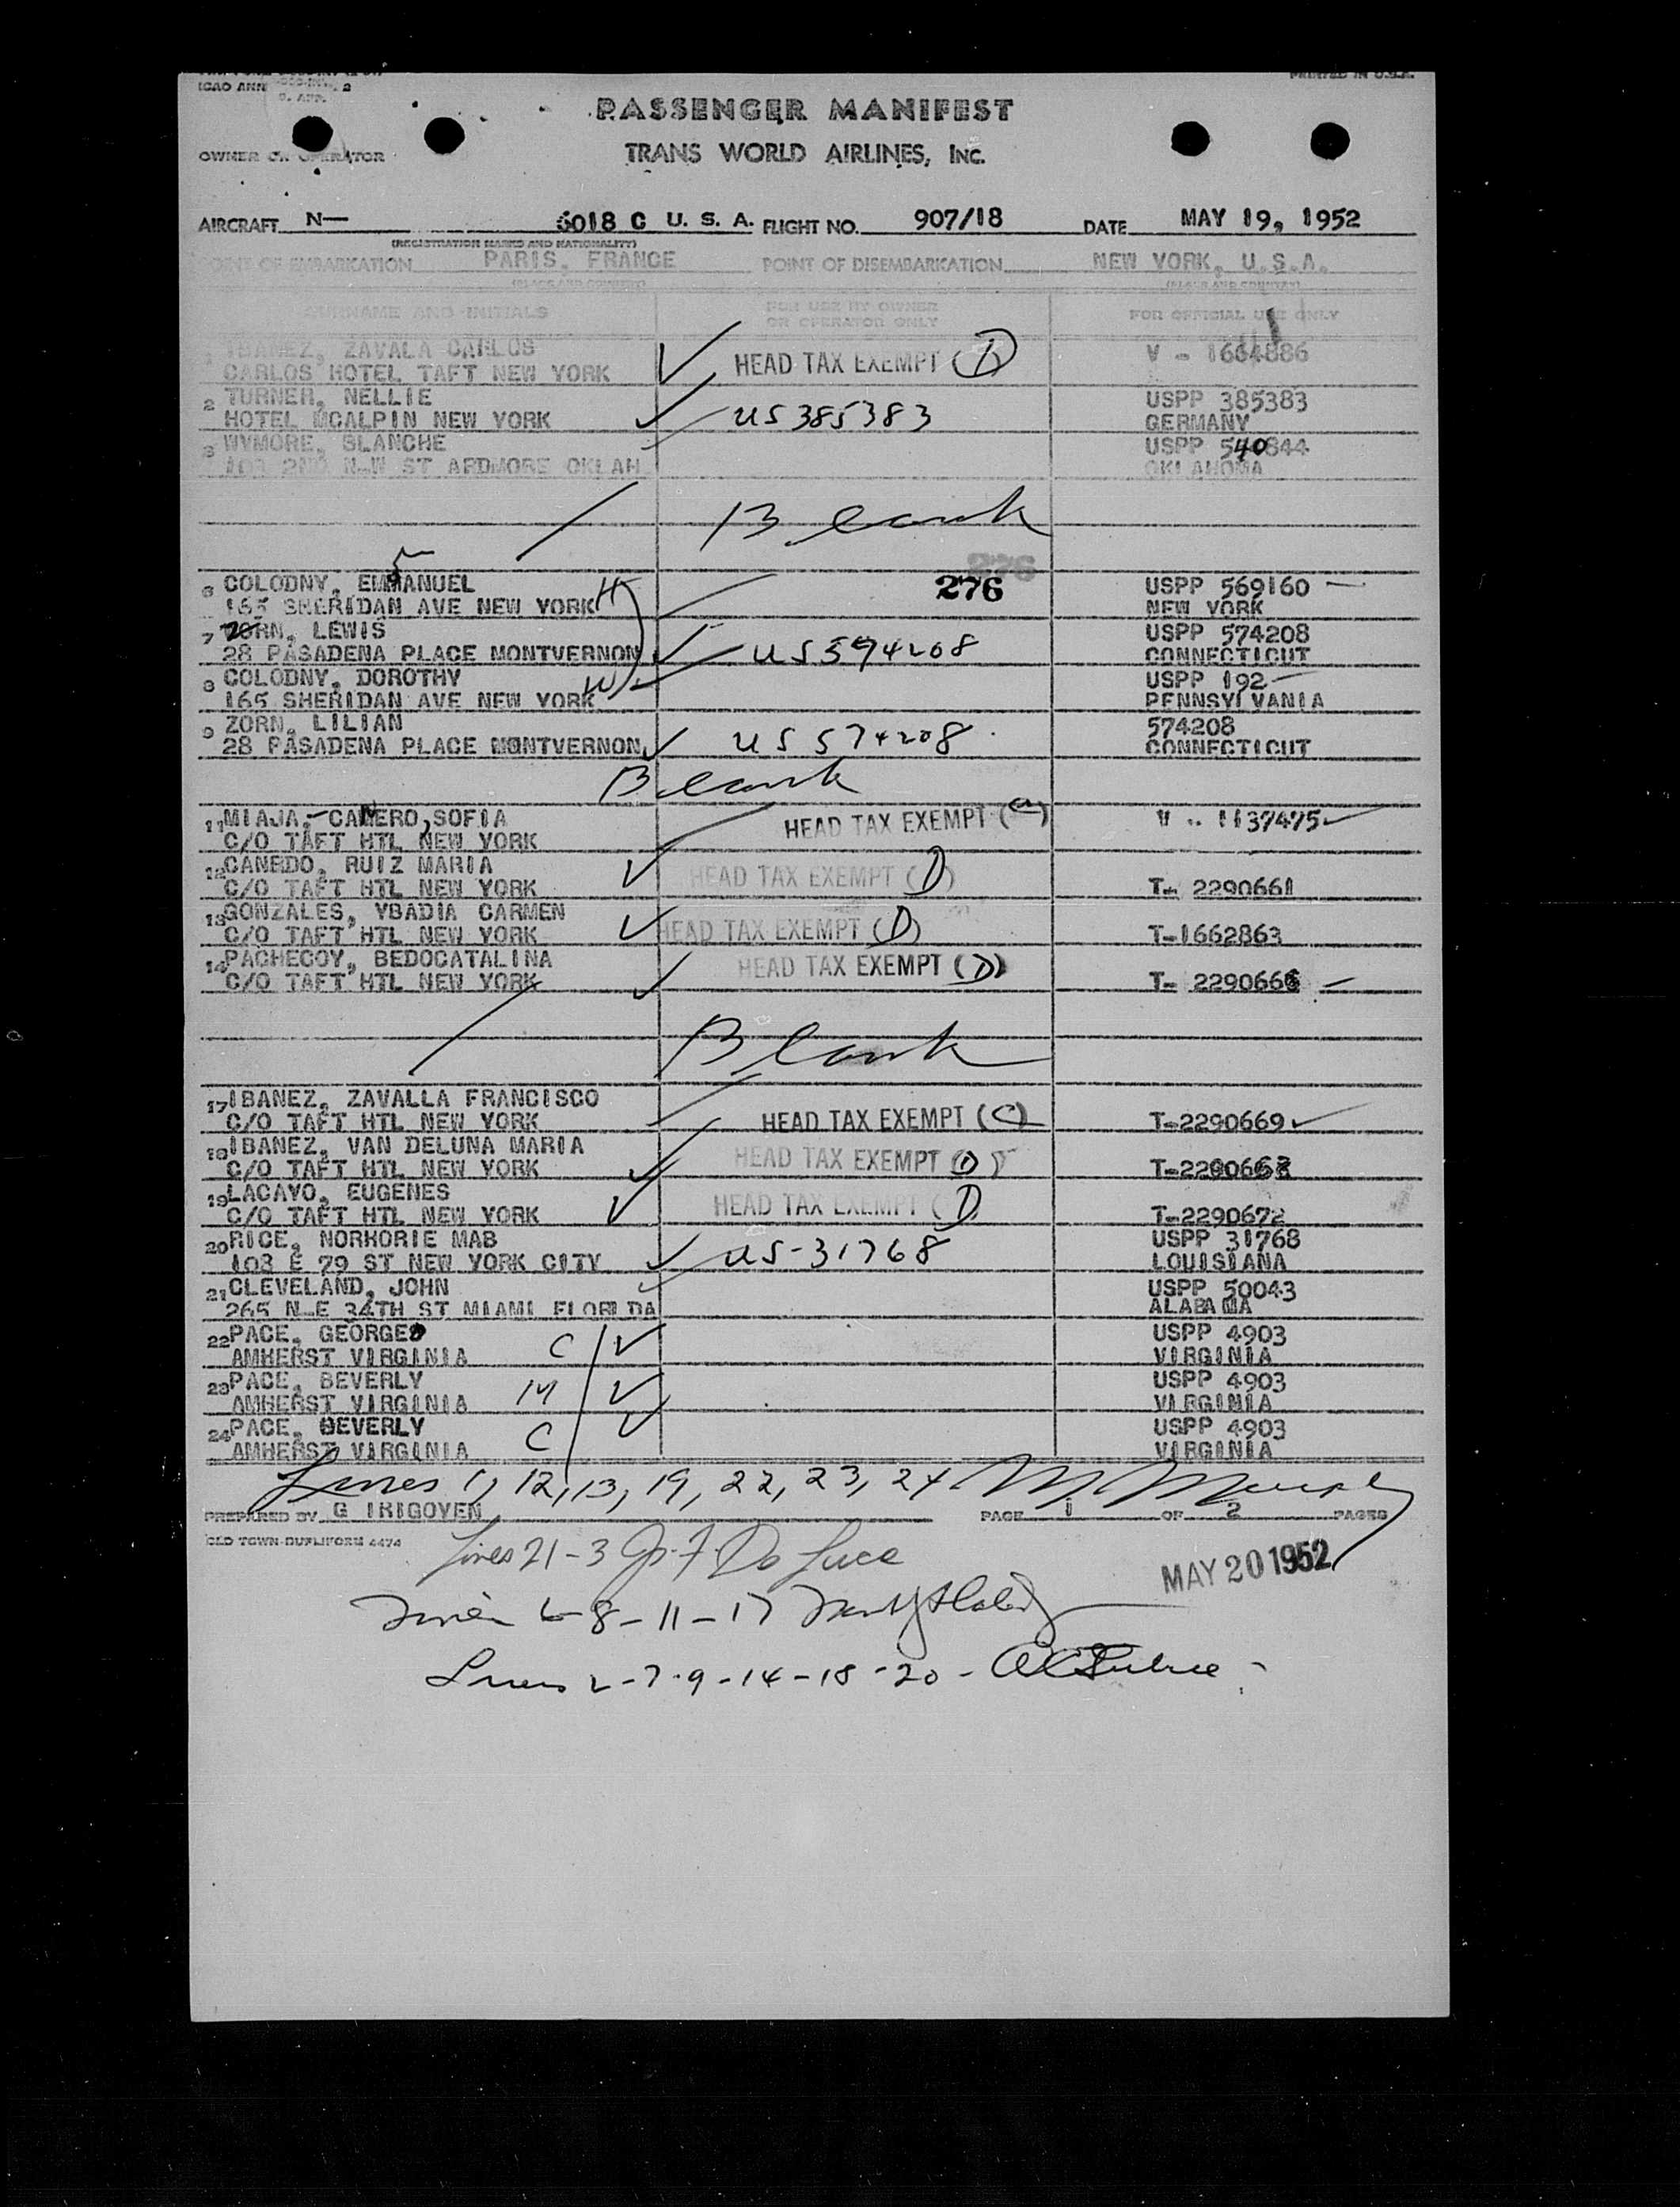 PRINTED IN U.S.A.
ICAO ANN 2
PASSENGER MANIFEST
OWNER OR OPERATOR TRANS WORLD AIRLINES, INC.
AIRCRAFT N— 6018 C U. S. A. FLIGHT NO. 907/18 DATE MAY 19, 1952
(REGISTRATION MARKS AND NATIONALITY)
POINT OF EMBARKATION PARIS, FRANCE POINT OF DISEMBARKATION NEW YORK, U.S.A.
(PLACE AND COUNTRY) (PLACE AND COUNTRY)
SURNAME AND INITIALS FOR USE BY OWNER OR OPERATOR ONLY FOR OFFICIAL USE ONLY
1 IBANEZ, ZAVALA CARLOS HEAD TAX EXEMPT (D) V - 1664886
CARLOS HOTEL TAFT NEW YORK
2 TURNER, NELLIE USPP 385383
HOTEL MCALPIN NEW YORK US 385383 GERMANY
3 WYMORE, BLANCHE USPP 540844
103 2ND N-W ST ARDMORE OKLAH OKLAHOMA
Blank
276
6 COLODNY, EMMANUEL 276 USPP 569160
165 SHERIDAN AVE NEW YORK H NEW YORK
7 ZORN, LEWIS USPP 574208
28 PASADENA PLACE MONTVERNON US 574208 CONNECTICUT
8 COLODNY, DOROTHY USPP 192
165 SHERIDAN AVE NEW YORK W PENNSYLVANIA
9 ZORN, LILIAN 574208
28 PASADENA PLACE MONTVERNON US 574208 CONNECTICUT
Blank
11 MIAJA,-CANERO,SOFIA HEAD TAX EXEMPT (C) V - 1137475
C/O TAFT HTL NEW YORK
12 CANEDO, RUIZ MARIA HEAD TAX EXEMPT (D)
C/O TAFT HTL NEW YORK T- 2290661
13 GONZALES, YBADIA CARMEN HEAD TAX EXEMPT (D)
C/O TAFT HTL NEW YORK T-1662863
14 PACHECOY, BEDOCATALINA HEAD TAX EXEMPT (D)
C/O TAFT HTL NEW YORK T- 2290666
Blank
17 IBANEZ, ZAVALLA FRANCISCO
C/O TAFT HTL NEW YORK HEAD TAX EXEMPT (C) T-2290669
18 IBANEZ, VAN DELUNA MARIA HEAD TAX EXEMPT (D)
C/O TAFT HTL NEW YORK T-2290668
19 LACAYO, EUGENES HEAD TAX EXEMPT (D)
C/O TAFT HTL NEW YORK T-2290672
20 RICE, NORHORIE MAB USPP 31768
103 E 79 ST NEW YORK CITY US-31768 LOUISIANA
21 CLEVELAND, JOHN USPP 50043
265 N-E 34TH ST MIAMI FLORIDA ALABAMA
22 PACE, GEORGE USPP 4903
AMHERST VIRGINIA C VIRGINIA
23 PACE, BEVERLY USPP 4903
AMHERST VIRGINIA M VIRGINIA
24 PACE, BEVERLY USPP 4903
AMHERST VIRGINIA C VIRGINIA
Lines 1, 12, 13, 19, 22, 23, 24 M Murphy
PREPARED BY G IRIGOYEN PAGE 1 OF 2 PAGES
OLD TOWN DUPLIFORM 4474
Lines 21-3 De Luce
MAY 20 1952
6-8-11-17
Lines 2-7-9-14-18-20-